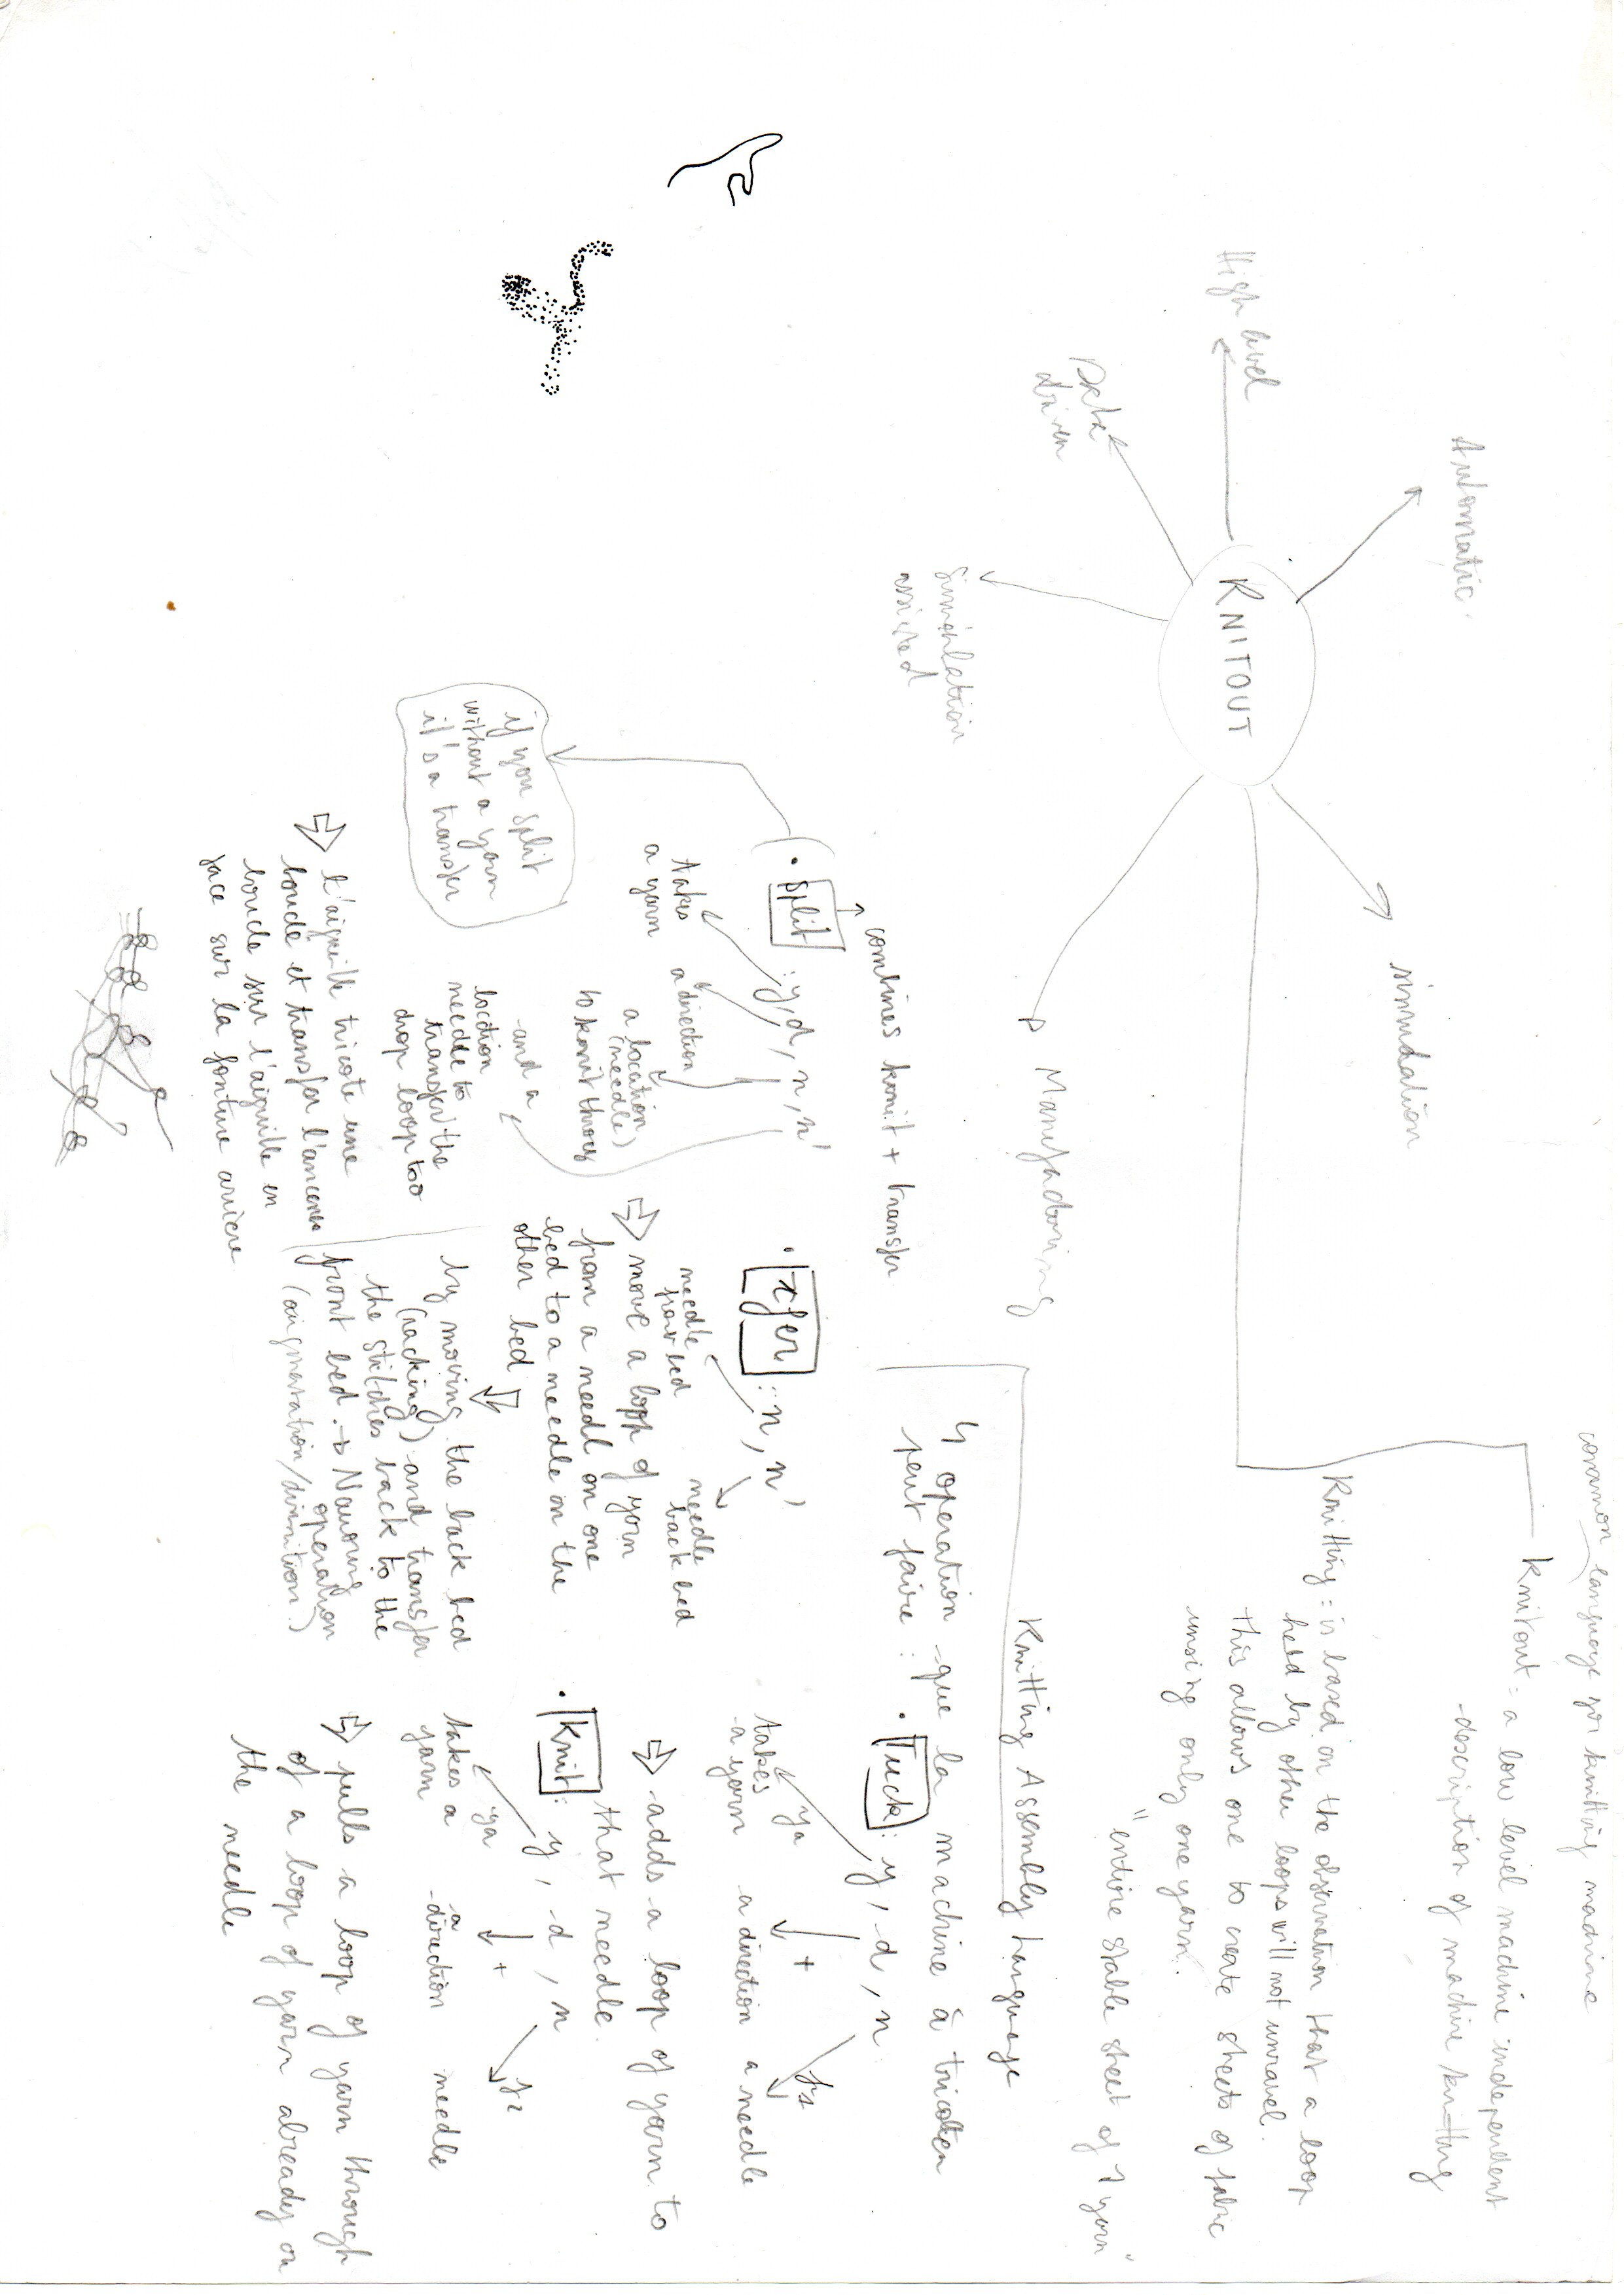 common language for knitting machine
Knitout = a low level machine independent
description of machine knitting
Knitting = is based on the observation that a loop
held by other loops will not unravel.
this allows one to create sheets of fabric
using only one yarn.
"entire stable sheet of 1 yarn"
KNITOUT
Automatic
High level
Data
driven
Simulation
assisted
simulation
Manufacturing
Knitting Assembly language
4 operation que la machine à tricoter
peut faire :
• Tuck : y, d, n
takes
a yarn
ya
+
a direction
a needle
⇒ adds a loop of yarn to
that needle.
• Knit : y, d, n
takes a
yarn
ya
+
a
direction
needle
⇒ pulls a loop of yarn through
of a loop of yarn already on
the needle
• xfer : n, n'
needle
front bed
needle
back bed
⇒ move a loop of yarn
from a needl on one
bed to a needle on the
other bed
⇒
by moving the back bed
(racking) and transfer
the stitches back to the
front bed. → Narrowing
operation
(augmentation/diminition.)
combines knit + transfer
• split : y, d, n, n'
takes
a yarn
a direction
a location
(needle)
to knit throug
and a
location
needle to
transfer the
drop loop too
if you split
without a yarn
it's a transfer
⇒ l'aiguille tricote une
boucle et transfer l'ancienne
boucle sur l'aiguille en
face sur la fonture arriere